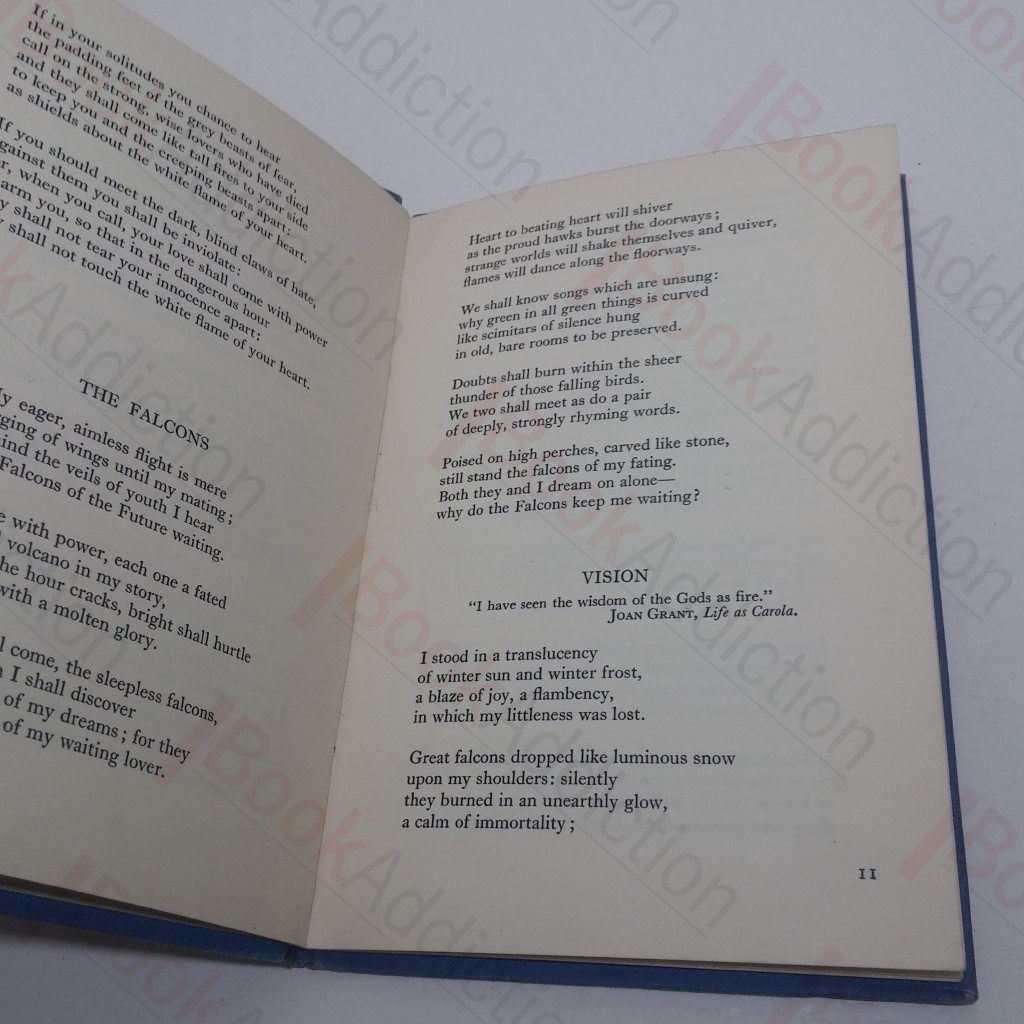 If in your solitudes you chance to hear
the padding feet of the grey beasts of fear,
call on the strong, wise lovers who have died
and they shall come like tall fires to your side
to keep you and the creeping beasts apart:
as shields about the white flame of your heart.
If you should meet the dark, blind claws of hate,
against them you shall be inviolate:
when you call, your love shall come with power
arm you, so that in the dangerous hour
shall not tear your innocence apart:
shall not touch the white flame of your heart.
THE FALCONS
My eager, aimless flight is mere
of wings until my mating;
the veils of youth I hear
Falcons of the Future waiting.
with power, each one a fated
volcano in my story,
the hour cracks, bright shall hurtle
with a molten glory.
come, the sleepless falcons,
I shall discover
of my dreams; for they
of my waiting lover.
Heart to beating heart will shiver
as the proud hawks burst the doorways;
strange worlds will shake themselves and quiver,
flames will dance along the floorways.
We shall know songs which are unsung:
why green in all green things is curved
like scimitars of silence hung
in old, bare rooms to be preserved.
Doubts shall burn within the sheer
thunder of those falling birds.
We two shall meet as do a pair
of deeply, strongly rhyming words.
Poised on high perches, carved like stone,
still stand the falcons of my fating.
Both they and I dream on alone—
why do the Falcons keep me waiting?
VISION
"I have seen the wisdom of the Gods as fire."
JOAN GRANT, Life as Carola.
I stood in a translucency
of winter sun and winter frost,
a blaze of joy, a flambency,
in which my littleness was lost.
Great falcons dropped like luminous snow
upon my shoulders: silently
they burned in an unearthly glow,
a calm of immortality;
11
BookAddiction